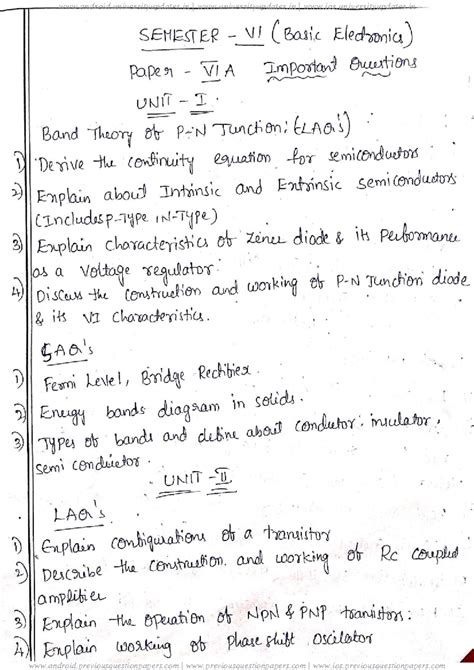 SEMESTER - VI (Basic Electronics)
Paper - VI A Important Questions
UNIT - I
Band Theory of P-N Junction; (LAQ's)
1) Derive the continuity equation for semiconductors
2) Explain about Intrinsic and Extrinsic semiconductors
(Includes P-Type, N-Type)
3) Explain characteristics of Zener diode & its Performance
as a Voltage regulator.
4) Discuss the construction and working of P-N Junction diode
& its VI characteristics.
SAQ's
1) Fermi Level, Bridge Rectifier.
2) Energy bands diagram in solids.
3) Types of bands and define about conductor, insulator,
semi conductor.
UNIT - II
LAQ's
1) Explain configurations of a transistor
2) Describe the construction and working of Rc coupled
amplifier
3) Explain the operation of NPN & PNP transistors.
4) Explain working of Phase shift oscilator
www.android.previousquestionpapers.com | www.previousquestionpapers.com | www.ios.previousquestionpapers.com